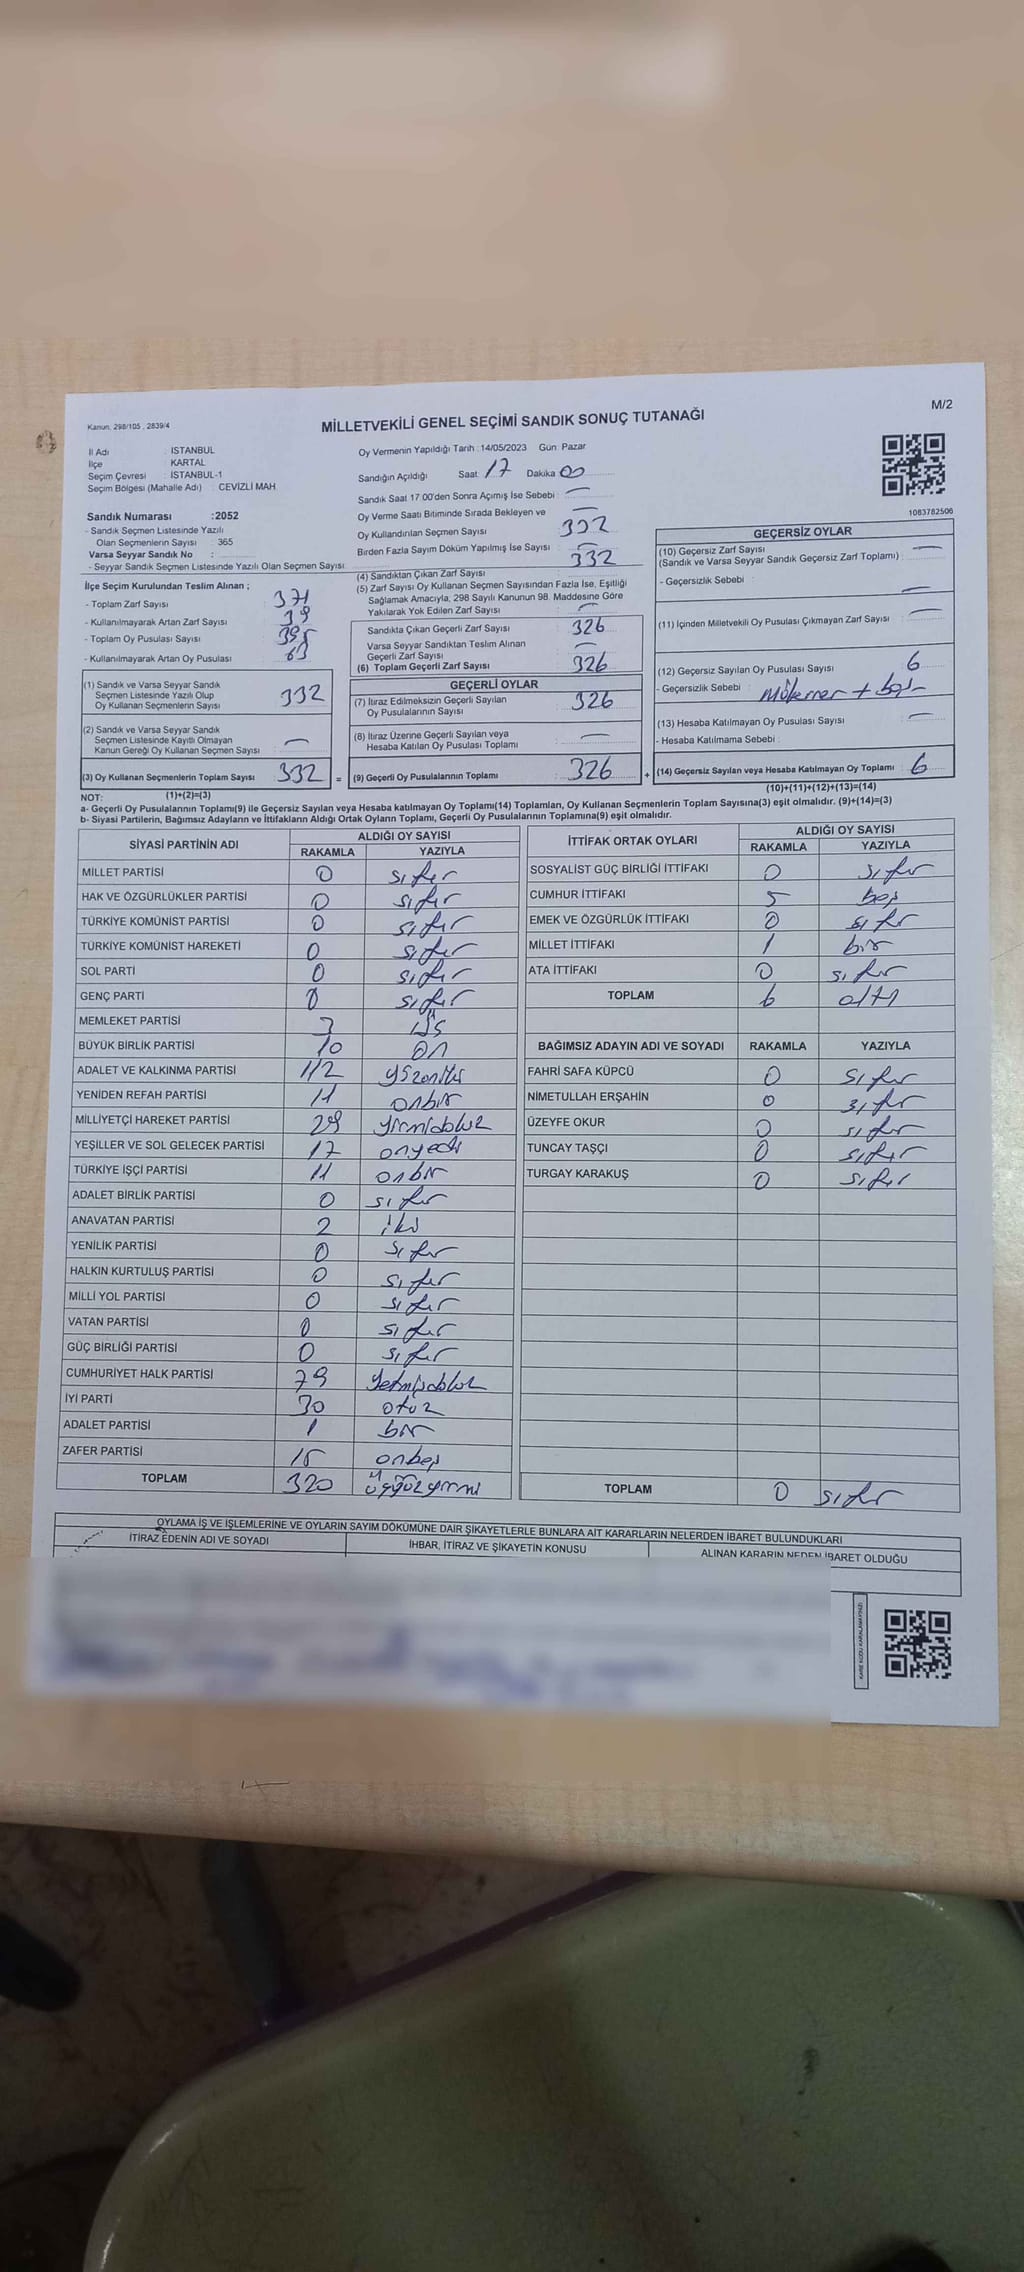 Kanun, 298/105 , 2839/4
MİLLETVEKİLİ GENEL SEÇİMİ SANDIK SONUÇ TUTANAĞI
M/2
İl Adı : İSTANBUL
İlçe : KARTAL
Seçim Çevresi : İSTANBUL-1
Seçim Bölgesi (Mahalle Adı) : CEVİZLİ MAH.
Sandık Numarası :2052
- Sandık Seçmen Listesinde Yazılı
Olan Seçmenlerin Sayısı : 365
Varsa Seyyar Sandık No :
- Seyyar Sandık Seçmen Listesinde Yazılı Olan Seçmen Sayısı:
İlçe Seçim Kurulundan Teslim Alınan ;
- Toplam Zarf Sayısı : 371
- Kullanılmayarak Artan Zarf Sayısı : 39
- Toplam Oy Pusulası Sayısı : 395
- Kullanılmayarak Artan Oy Pusulası : 63
(1) Sandık ve Varsa Seyyar Sandık
Seçmen Listesinde Yazılı Olup
Oy Kullanan Seçmenlerin Sayısı : 332
(2) Sandık ve Varsa Seyyar Sandık
Seçmen Listesinde Kayıtlı Olmayan
Kanun Gereği Oy Kullanan Seçmen Sayısı : —
(3) Oy Kullanan Seçmenlerin Toplam Sayısı : 332 =
(1)+(2)=(3)
Oy Vermenin Yapıldığı Tarih :14/05/2023 Gün: Pazar
Sandığın Açıldığı Saat: 17 Dakika: 00
Sandık Saat 17:00'den Sonra Açımış İse Sebebi : —
Oy Verme Saati Bitiminde Sırada Bekleyen ve
Oy Kullandırılan Seçmen Sayısı : 332
Birden Fazla Sayım Döküm Yapılmış İse Sayısı : —
(4) Sandıktan Çıkan Zarf Sayısı : 332
(5) Zarf Sayısı Oy Kullanan Seçmen Sayısından Fazla İse, Eşitliği
Sağlamak Amacıyla, 298 Sayılı Kanunun 98. Maddesine Göre
Yakılarak Yok Edilen Zarf Sayısı : —
Sandıkta Çıkan Geçerli Zarf Sayısı : 326
Varsa Seyyar Sandıktan Teslim Alınan
Geçerli Zarf Sayısı : —
(6) Toplam Geçerli Zarf Sayısı : 326
GEÇERLİ OYLAR
(7) İtiraz Edilmeksizin Geçerli Sayılan
Oy Pusulalarının Sayısı : 326
(8) İtiraz Üzerine Geçerli Sayılan veya
Hesaba Katılan Oy Pusulası Toplamı : —
(9) Geçerli Oy Pusulalarının Toplamı : 326 +
1083782506
GEÇERSİZ OYLAR
(10) Geçersiz Zarf Sayısı : —
(Sandık ve Varsa Seyyar Sandık Geçersiz Zarf Toplamı)
- Geçersizlik Sebebi : —
(11) İçinden Milletvekili Oy Pusulası Çıkmayan Zarf Sayısı : —
(12) Geçersiz Sayılan Oy Pusulası Sayısı : 6
- Geçersizlik Sebebi :
(13) Hesaba Katılmayan Oy Pusulası Sayısı : —
- Hesaba Katılmama Sebebi :
(14) Geçersiz Sayılan veya Hesaba Katılmayan Oy Toplamı : 6
(10)+(11)+(12)+(13)=(14)
NOT:
a- Geçerli Oy Pusulalarının Toplamı(9) ile Geçersiz Sayılan veya Hesaba katılmayan Oy Toplamı(14) Toplamları, Oy Kullanan Seçmenlerin Toplam Sayısına(3) eşit olmalıdır. (9)+(14)=(3)
b- Siyasi Partilerin, Bağımsız Adayların ve İttifakların Aldığı Ortak Oyların Toplamı, Geçerli Oy Pusulalarının Toplamına(9) eşit olmalıdır.
SİYASİ PARTİNİN ADI ALDIĞI OY SAYISI
RAKAMLA YAZIYLA
MİLLET PARTİSİ 0 sıfır
HAK VE ÖZGÜRLÜKLER PARTİSİ 0 sıfır
TÜRKİYE KOMÜNİST PARTİSİ 0 sıfır
TÜRKİYE KOMÜNİST HAREKETİ 0 sıfır
SOL PARTİ 0 sıfır
GENÇ PARTİ 0 sıfır
MEMLEKET PARTİSİ 3 üç
BÜYÜK BİRLİK PARTİSİ 10 on
ADALET VE KALKINMA PARTİSİ 112 yüzoniki
YENİDEN REFAH PARTİSİ 11 onbir
MİLLİYETÇİ HAREKET PARTİSİ 29 yirmidokuz
YEŞİLLER VE SOL GELECEK PARTİSİ 17 onyedi
TÜRKİYE İŞÇİ PARTİSİ 11 onbir
ADALET BİRLİK PARTİSİ 0 sıfır
ANAVATAN PARTİSİ 2 iki
YENİLİK PARTİSİ 0 sıfır
HALKIN KURTULUŞ PARTİSİ 0 sıfır
MİLLİ YOL PARTİSİ 0 sıfır
VATAN PARTİSİ 0 sıfır
GÜÇ BİRLİĞİ PARTİSİ 0 sıfır
CUMHURİYET HALK PARTİSİ 79 yetmişdokuz
İYİ PARTİ 30 otuz
ADALET PARTİSİ 1 bir
ZAFER PARTİSİ 15 onbeş
TOPLAM 320 üçyüzyirmi
İTTİFAK ORTAK OYLARI ALDIĞI OY SAYISI
RAKAMLA YAZIYLA
SOSYALİST GÜÇ BİRLİĞİ İTTİFAKI 0 sıfır
CUMHUR İTTİFAKI 5 beş
EMEK VE ÖZGÜRLÜK İTTİFAKI 0 sıfır
MİLLET İTTİFAKI 1 bir
ATA İTTİFAKI 0 sıfır
TOPLAM 6 altı
BAĞIMSIZ ADAYIN ADI VE SOYADI RAKAMLA YAZIYLA
FAHRİ SAFA KÜPCÜ 0 sıfır
NİMETULLAH ERŞAHİN 0 sıfır
ÜZEYFE OKUR 0 sıfır
TUNCAY TAŞÇI 0 sıfır
TURGAY KARAKUŞ 0 sıfır
TOPLAM 0 sıfır
OYLAMA İŞ VE İŞLEMLERİNE VE OYLARIN SAYIM DÖKÜMÜNE DAİR ŞİKAYETLERLE BUNLARA AİT KARARLARIN NELERDEN İBARET BULUNDUKLARI
İTİRAZ EDENİN ADI VE SOYADI İHBAR, İTİRAZ VE ŞİKAYETİN KONUSU ALINAN KARARIN NEDEN İBARET OLDUĞU
KARE KODU KARALAMAYINIZ!